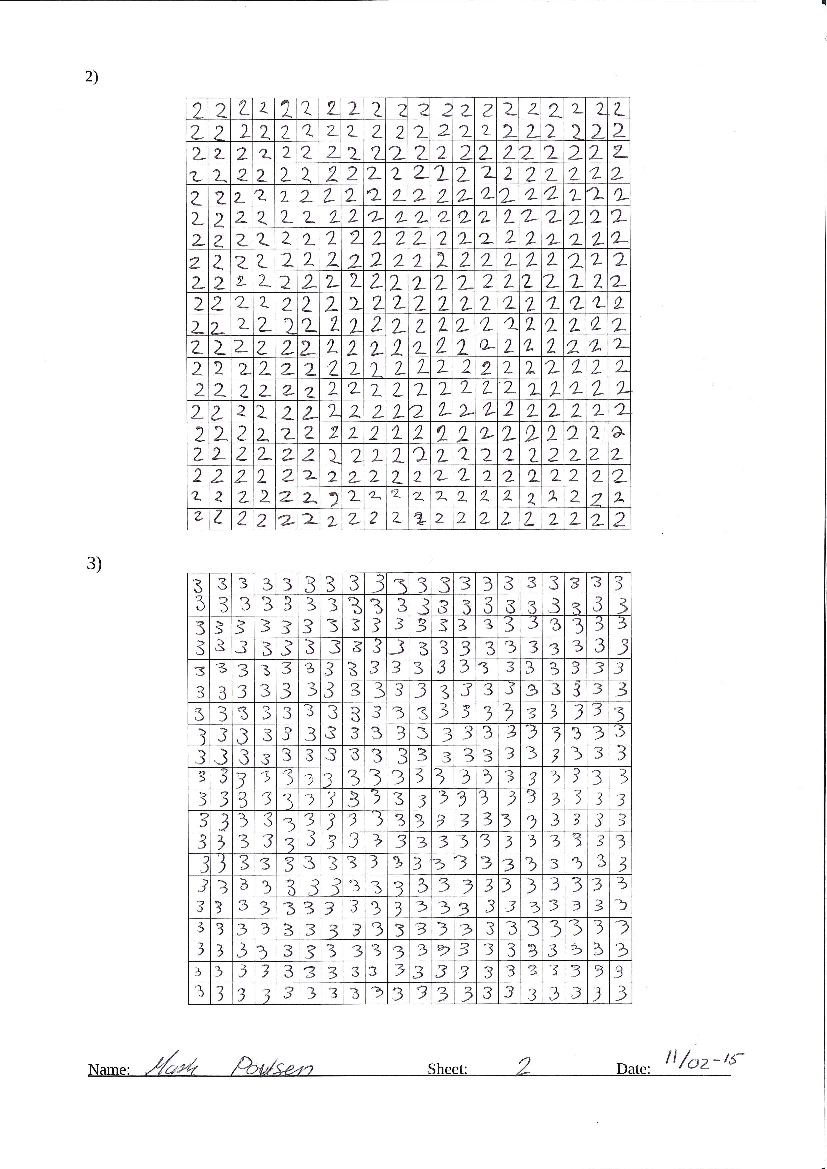 2)
2 2 2 2 2 2 2 2 2 2 2 2 2 2 2 2 2 2 2 2
2 2 2 2 2 2 2 2 2 2 2 2 2 2 2 2 2 2 2 2
2 2 2 2 2 2 2 2 2 2 2 2 2 2 2 2 2 2 2 2
2 2 2 2 2 2 2 2 2 2 2 2 2 2 2 2 2 2 2 2
2 2 2 2 2 2 2 2 2 2 2 2 2 2 2 2 2 2 2 2
2 2 2 2 2 2 2 2 2 2 2 2 2 2 2 2 2 2 2 2
2 2 2 2 2 2 2 2 2 2 2 2 2 2 2 2 2 2 2 2
2 2 2 2 2 2 2 2 2 2 2 2 2 2 2 2 2 2 2 2
2 2 2 2 2 2 2 2 2 2 2 2 2 2 2 2 2 2 2 2
2 2 2 2 2 2 2 2 2 2 2 2 2 2 2 2 2 2 2 2
2 2 2 2 2 2 2 2 2 2 2 2 2 2 2 2 2 2 2 2
2 2 2 2 2 2 2 2 2 2 2 2 2 2 2 2 2 2 2 2
2 2 2 2 2 2 2 2 2 2 2 2 2 2 2 2 2 2 2 2
2 2 2 2 2 2 2 2 2 2 2 2 2 2 2 2 2 2 2 2
2 2 2 2 2 2 2 2 2 2 2 2 2 2 2 2 2 2 2 2
2 2 2 2 2 2 2 2 2 2 2 2 2 2 2 2 2 2 2 2
2 2 2 2 2 2 2 2 2 2 2 2 2 2 2 2 2 2 2 2
2 2 2 2 2 2 2 2 2 2 2 2 2 2 2 2 2 2 2 2
2 2 2 2 2 2 2 2 2 2 2 2 2 2 2 2 2 2 2 2
2 2 2 2 2 2 2 2 2 2 2 2 2 2 2 2 2 2 2 2
3)
3 3 3 3 3 3 3 3 3 3 3 3 3 3 3 3 3 3 3 3
3 3 3 3 3 3 3 3 3 3 3 3 3 3 3 3 3 3 3 3
3 3 3 3 3 3 3 3 3 3 3 3 3 3 3 3 3 3 3 3
3 3 3 3 3 3 3 3 3 3 3 3 3 3 3 3 3 3 3 3
3 3 3 3 3 3 3 3 3 3 3 3 3 3 3 3 3 3 3 3
3 3 3 3 3 3 3 3 3 3 3 3 3 3 3 3 3 3 3 3
3 3 3 3 3 3 3 3 3 3 3 3 3 3 3 3 3 3 3 3
3 3 3 3 3 3 3 3 3 3 3 3 3 3 3 3 3 3 3 3
3 3 3 3 3 3 3 3 3 3 3 3 3 3 3 3 3 3 3 3
3 3 3 3 3 3 3 3 3 3 3 3 3 3 3 3 3 3 3 3
3 3 3 3 3 3 3 3 3 3 3 3 3 3 3 3 3 3 3 3
3 3 3 3 3 3 3 3 3 3 3 3 3 3 3 3 3 3 3 3
3 3 3 3 3 3 3 3 3 3 3 3 3 3 3 3 3 3 3 3
3 3 3 3 3 3 3 3 3 3 3 3 3 3 3 3 3 3 3 3
3 3 3 3 3 3 3 3 3 3 3 3 3 3 3 3 3 3 3 3
3 3 3 3 3 3 3 3 3 3 3 3 3 3 3 3 3 3 3 3
3 3 3 3 3 3 3 3 3 3 3 3 3 3 3 3 3 3 3 3
3 3 3 3 3 3 3 3 3 3 3 3 3 3 3 3 3 3 3 3
3 3 3 3 3 3 3 3 3 3 3 3 3 3 3 3 3 3 3 3
3 3 3 3 3 3 3 3 3 3 3 3 3 3 3 3 3 3 3 3
Name: Poulsen Sheet: 2 Date: 11/02-15